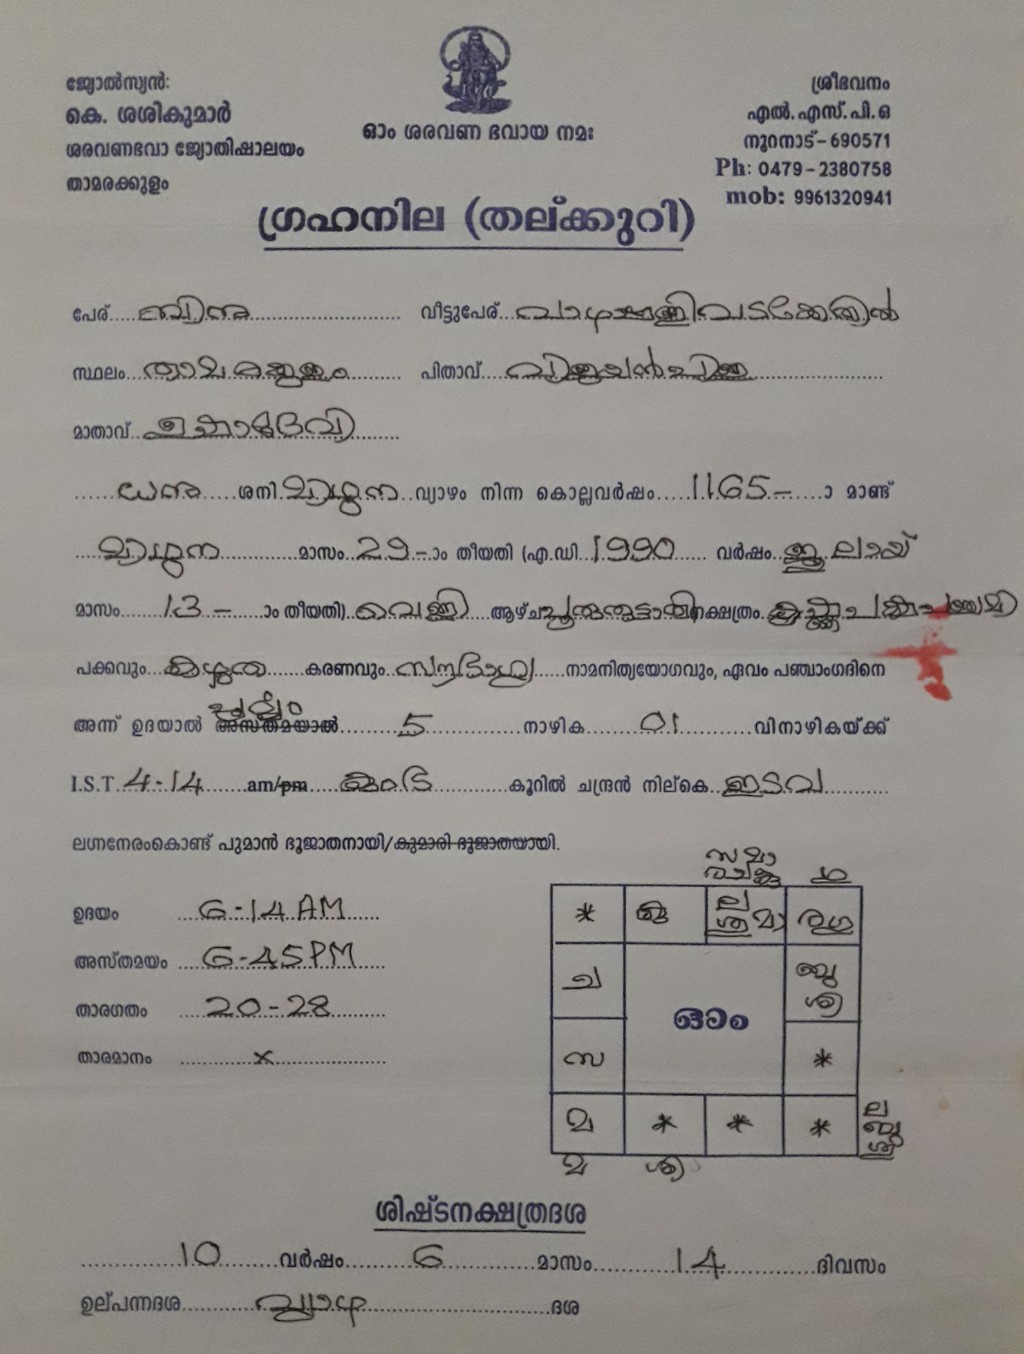 ജ്യോൽസ്യൻ:
കെ. ശശികുമാർ
ശരവണഭവാ ജ്യോതിഷാലയം
താമരക്കുളം
ഓം ശരവണ ഭവായ നമഃ
ശ്രീഭവനം
എൽ.എസ്.പി.ഒ
നൂറനാട്-690571
Ph: 0479-2380758
mob: 9961320941
ഗ്രഹനില (തല്ക്കുറി)
പേര് ബിനു വീട്ടുപേര്
സ്ഥലം താമരക്കുളം പിതാവ് വിജയൻപിള്ള
മാതാവ്
ധനു ശനി മിഥുന വ്യാഴം നിന്ന കൊല്ലവർഷം 1165- ാ മാണ്ട്
മിഥുന മാസം 29- ാം തീയതി (എ.ഡി 1990 വർഷം ജൂലായ്
മാസം 13- ാം തീയതി) വെള്ളി ആഴ്ച പൂരുരുട്ടാതി നക്ഷത്രം കൃഷ്ണപക്ഷപഞ്ചമി
പക്കവും കഴുത കരണവും സൗഭാഗ്യ നാമനിത്യയോഗവും, ഏവം പഞ്ചാംഗദിനെ
അന്ന് ഉദയാൽ പൂർവ്വം അസ്തമയാൽ 5 നാഴിക 01 വിനാഴികയ്ക്ക്
I.S.T 4-14 am/pm കുംഭ കൂറിൽ ചന്ദ്രൻ നില്കെ ഇടവ
ലഗ്നനേരംകൊണ്ട് പുമാൻ ഭൂജാതനായി/കുമാരി ഭൂജാതയായി.
ഉദയം 6-14 AM
അസ്തമയം 6-45 PM
താരഗതം 20-28
താരമാനം x
* ശു ല മാ ര ഗു
ച ബു ശി
ഓം
സ *
മ * * *
ല
ബു
മ ശി
ശിഷ്ടനക്ഷത്രദശ
10 വർഷം 6 മാസം 14 ദിവസം
ഉല്പന്നദശ വ്യാഴ ദശ